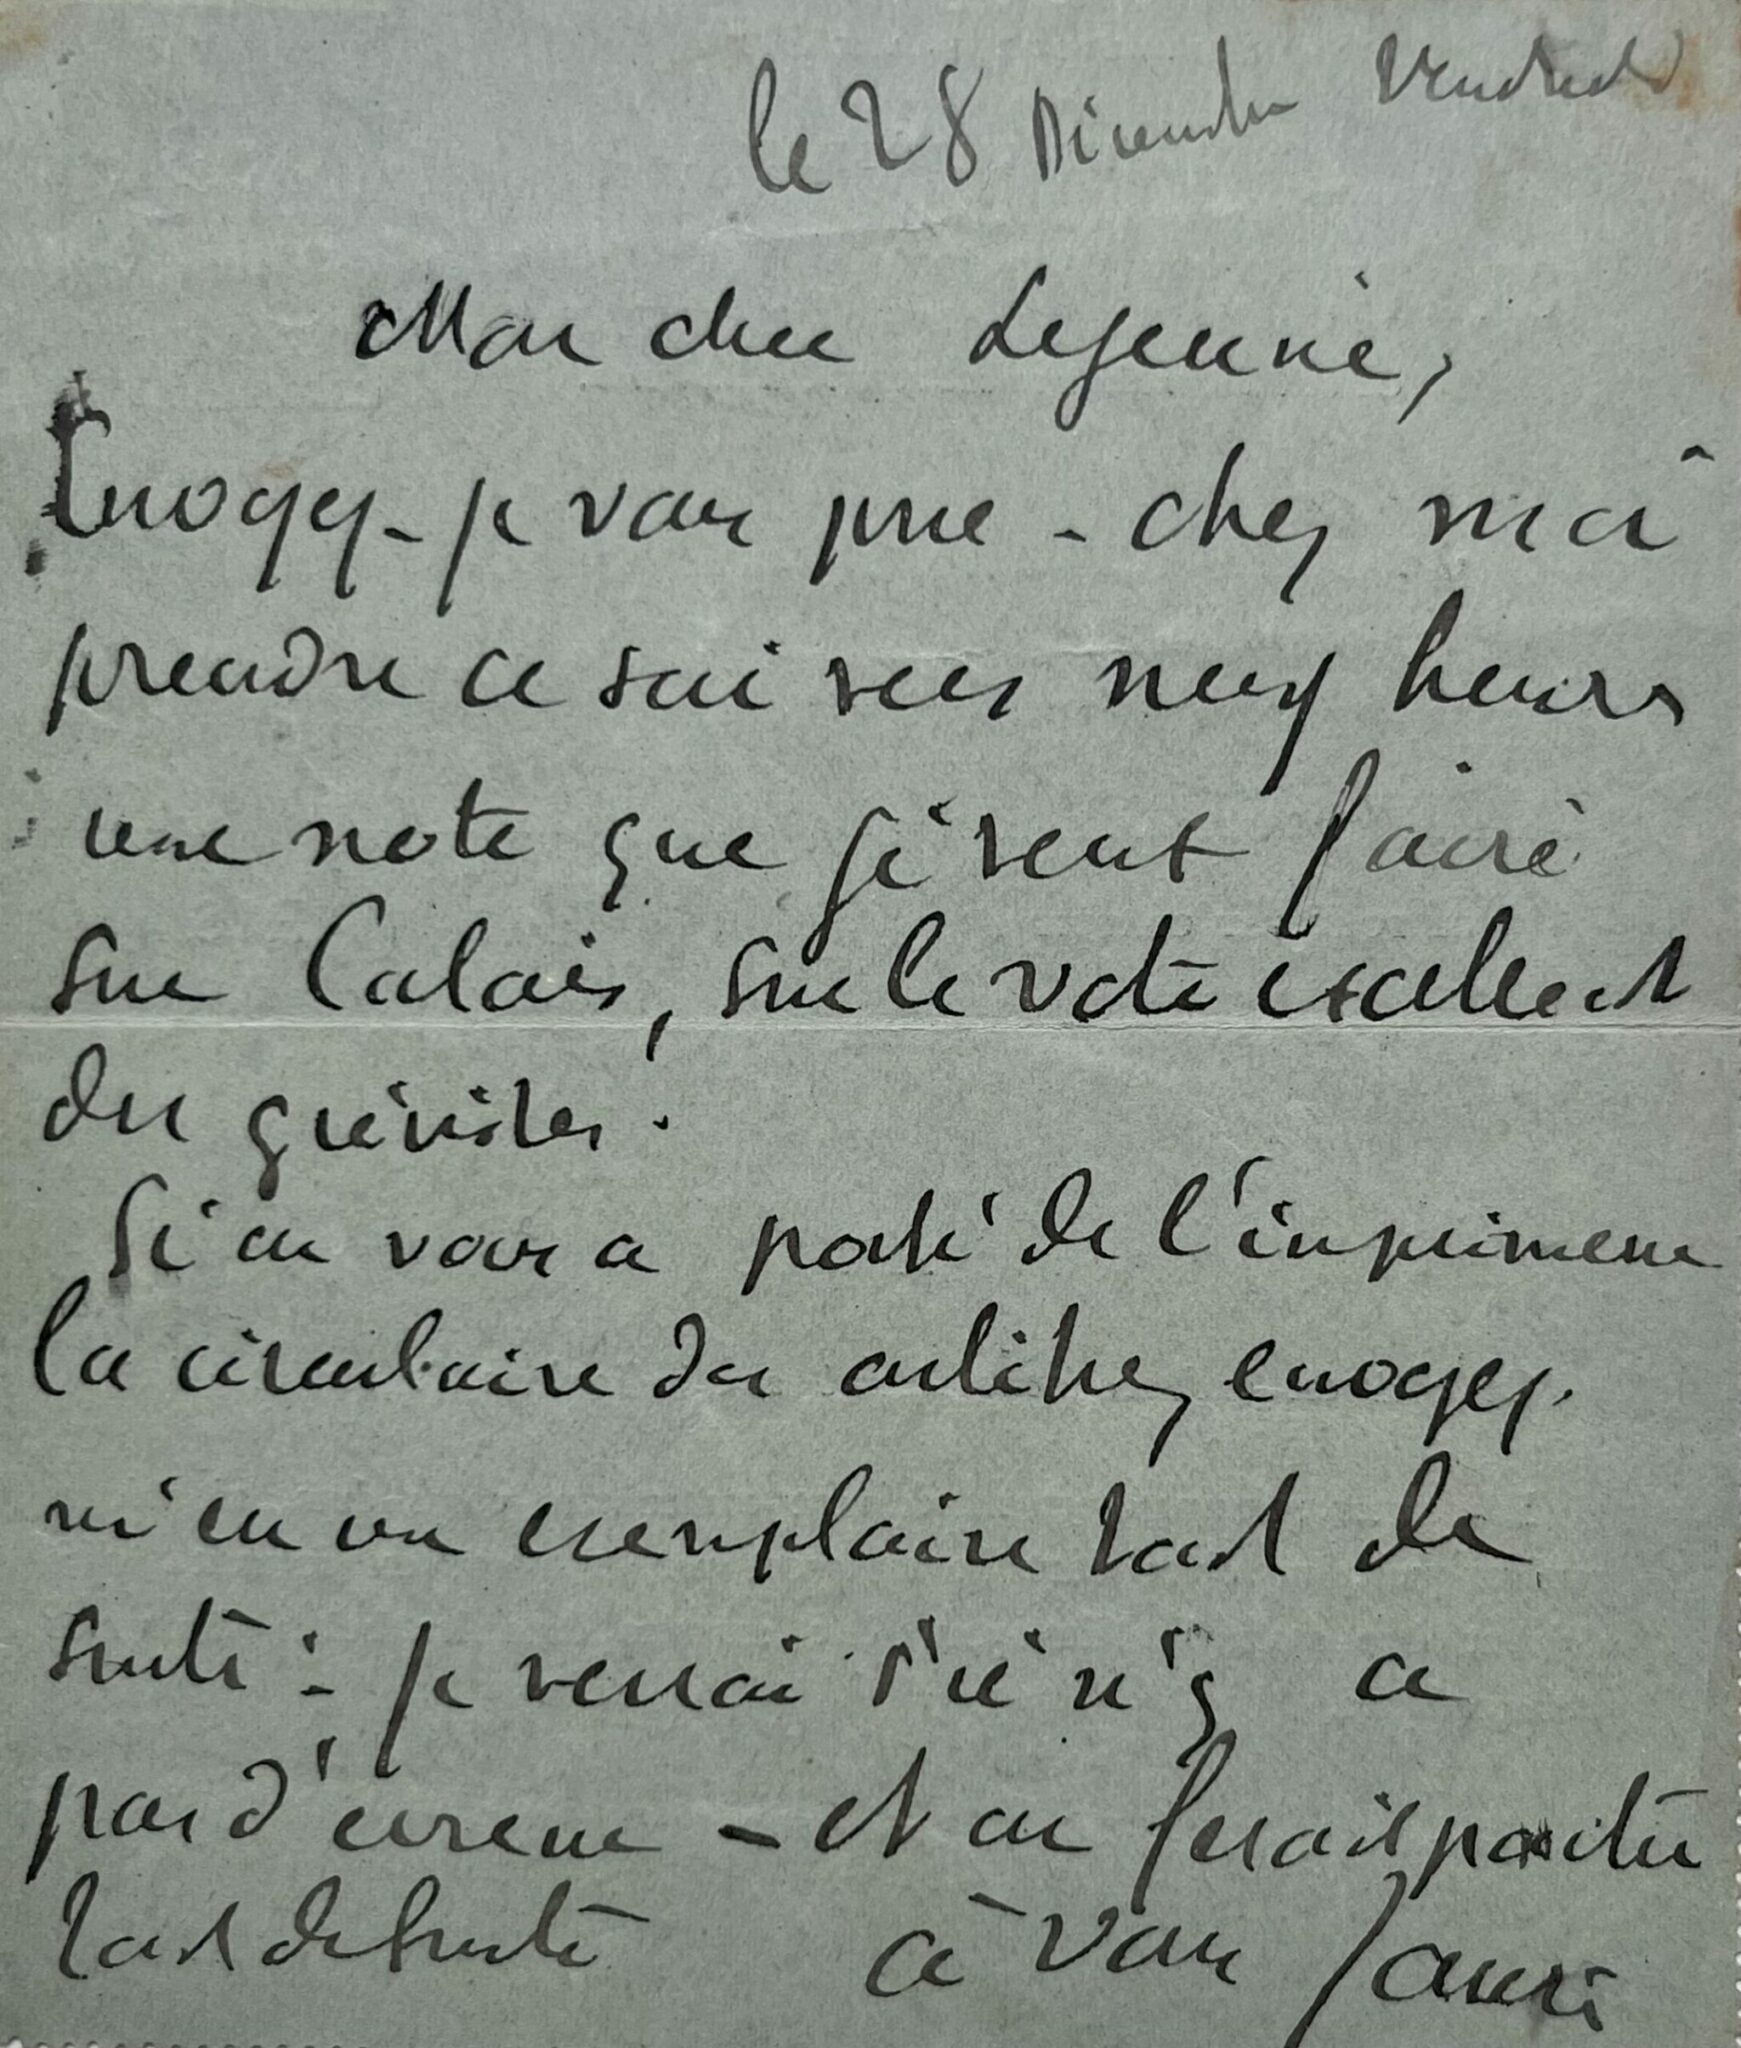 le 28 Décembre Vendredi
Mon cher Lejeune,
Envoyez - je vous prie - chez moi
prendre ce soir vers neuf heures
une note que je veux faire
sur Calais, sur le vote excellent
des grévistes.
Si on vous a porté de l'imprimerie
la circulaire des artistes, envoyez
m'en un exemplaire tout de
suite : je verrai s'il n'y a
pas d'erreur - et on ferait partir
tout de suite à vous Jaurès